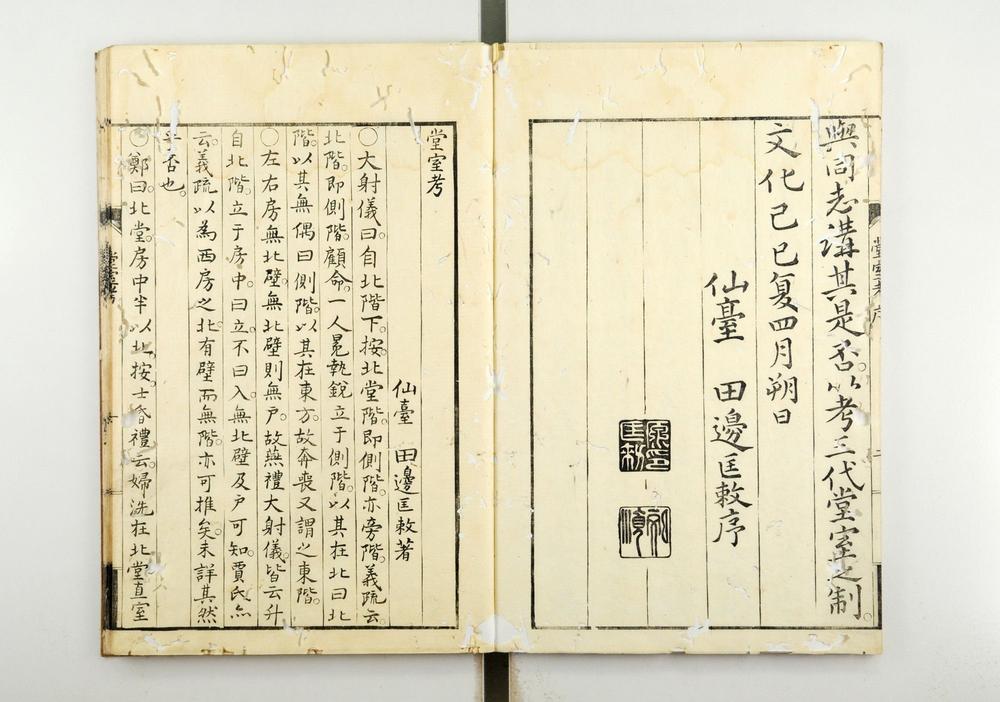 與同志講其是否。以考三代堂室之制。
文化己巳夏四月朔日
仙臺　田邊匡敕序
堂室考
仙臺　田邊匡敕著
〇大射儀曰。自北階下。按。北堂階。即側階。亦旁階。義疏云。
北階。即側階。顧命。一人冕執銳立于側階。以其在北曰北
階。以其無偶曰側階。以其在東方。故奔喪又謂之東階。
〇左右房無北壁。無北壁則無戶。故燕禮大射儀。皆云升
自北階。立于房中。曰立。不曰入。無北壁及戶可知。賈氏亦
云。義疏以為西房之北。有壁而無階。亦可推矣。未詳其然
乎否也。
〇鄭曰。北堂。房中半以北。按。士昏禮云。婦洗在北堂直室